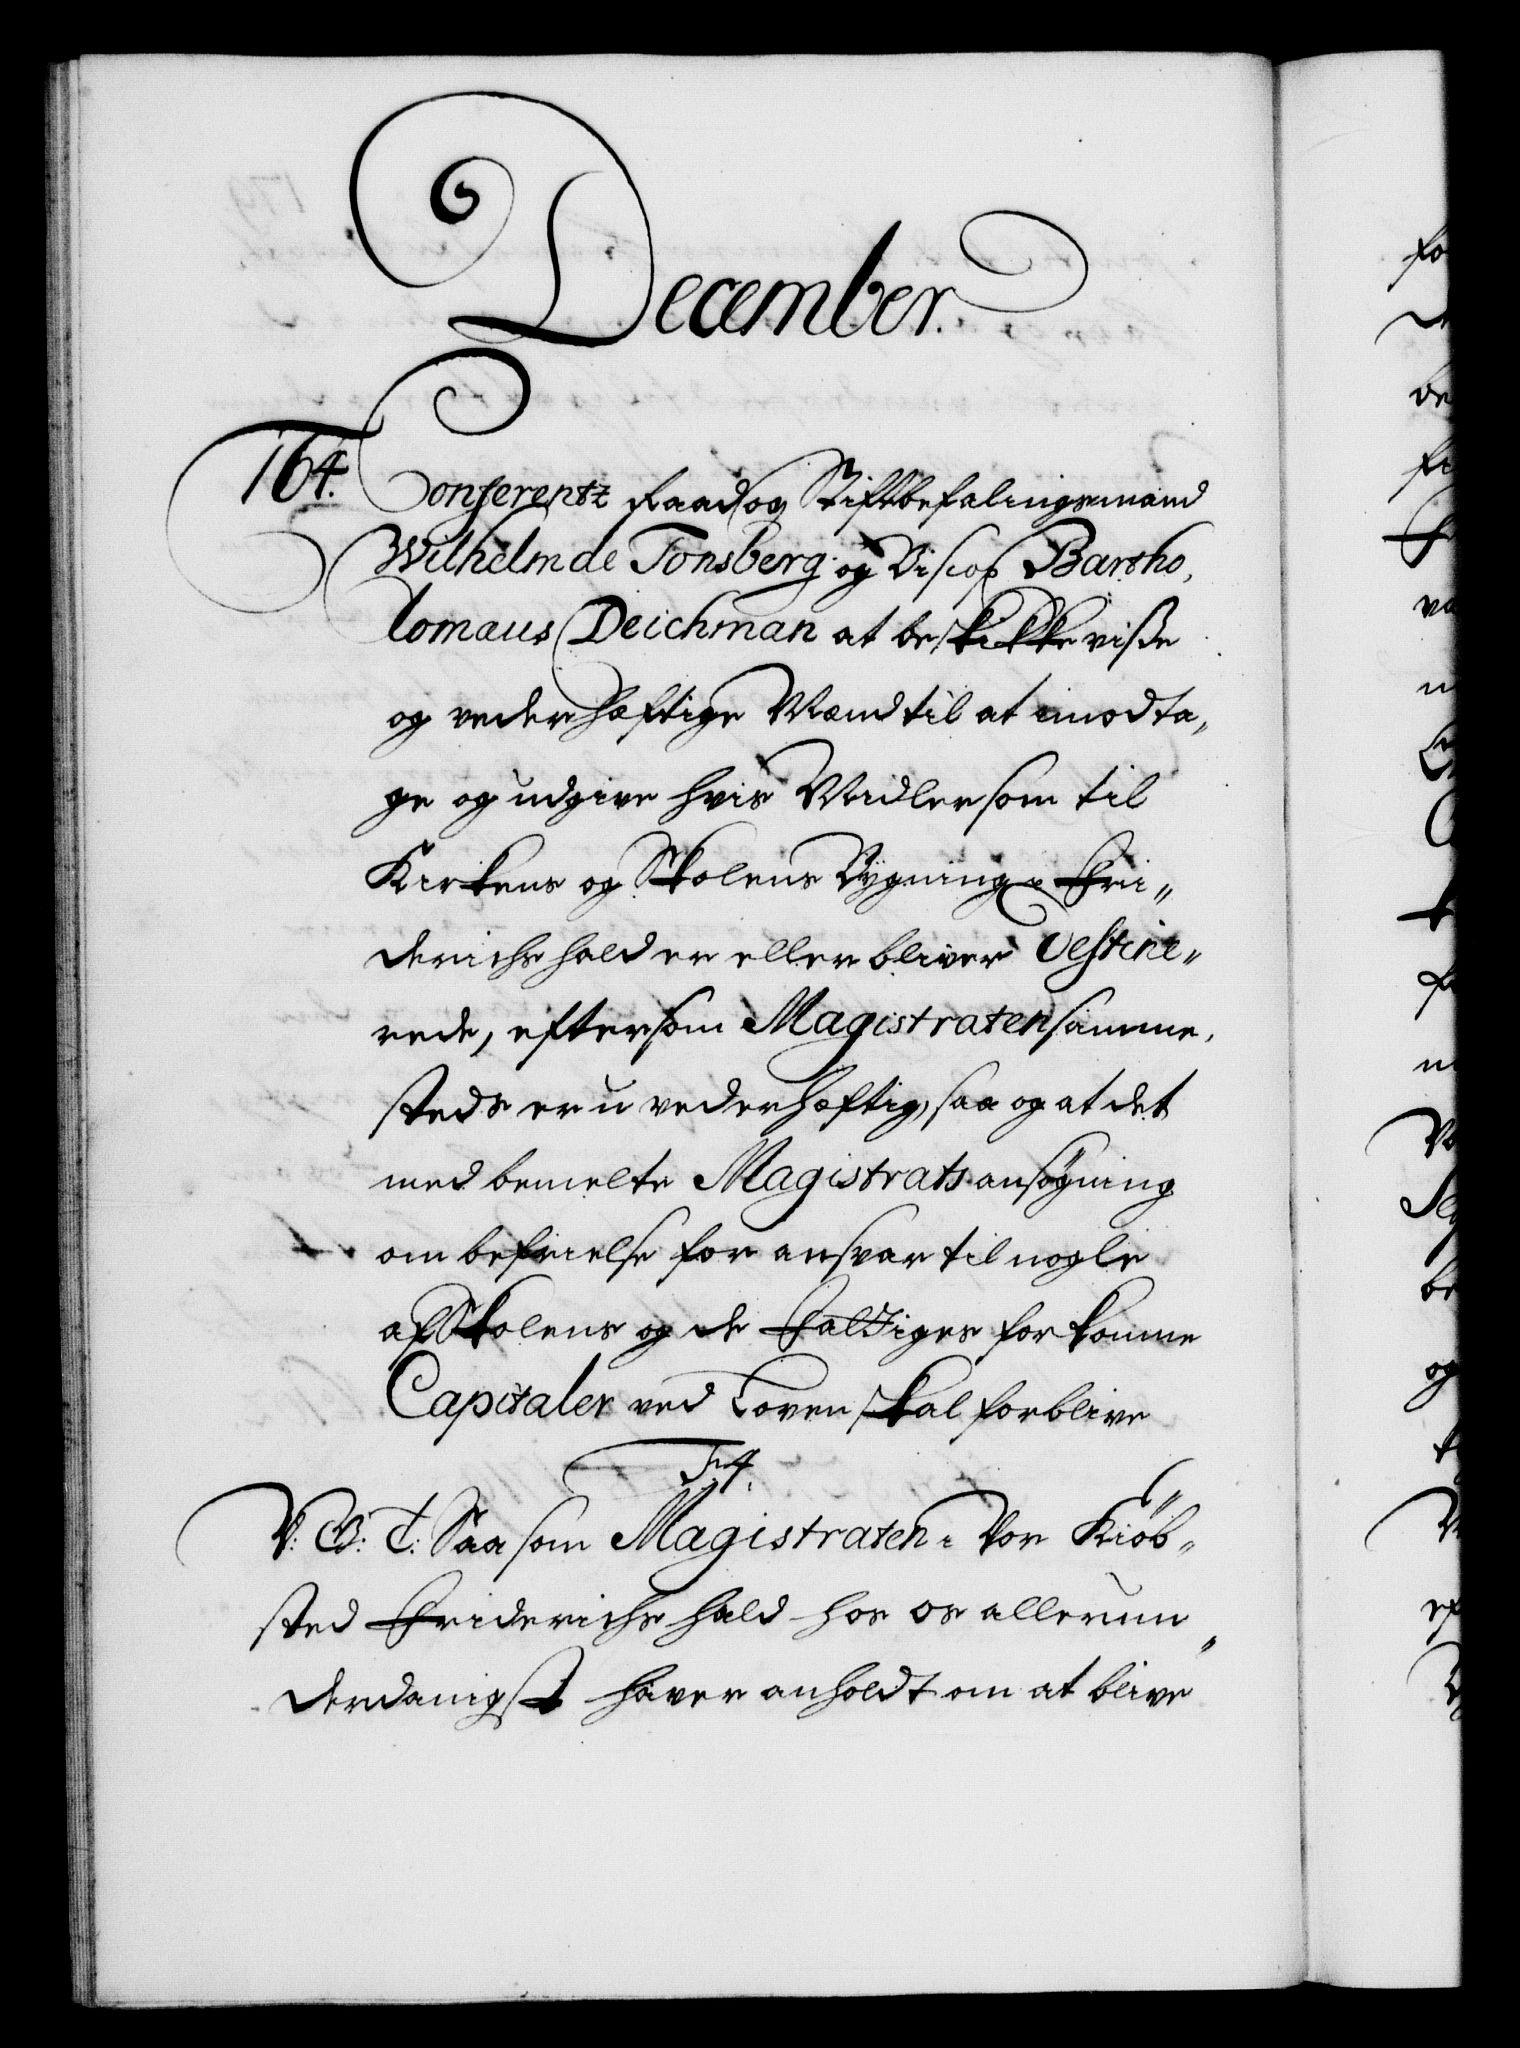 December.
164. Conferentz Raad og Stiftbefalingsmand
Wilhelm de Tonsberg og Biscop Bartho,
lomæus Deichman at beskikke viße
og vederhæftige Mænd til at imodta„
ge og udgive hvis Midler som til
Kirkens og Skolens Bygning i Fri„
derichshald er eller bliver destine„
rede, eftersom Magistraten samme,
steds er u vederhæftig, saa og at det
med bemelte Magistrats ansøgning
om befrielse for ansvar til nogle
af Skolens og de Fattiges forkomne
Capitaler ved Loven skal forblive
F: 4.
V: G: T: Saasom Magistraten i Vor Kiøb„
sted Friderichshald hos os allerun„
derdanigst haver anholdt om at blive